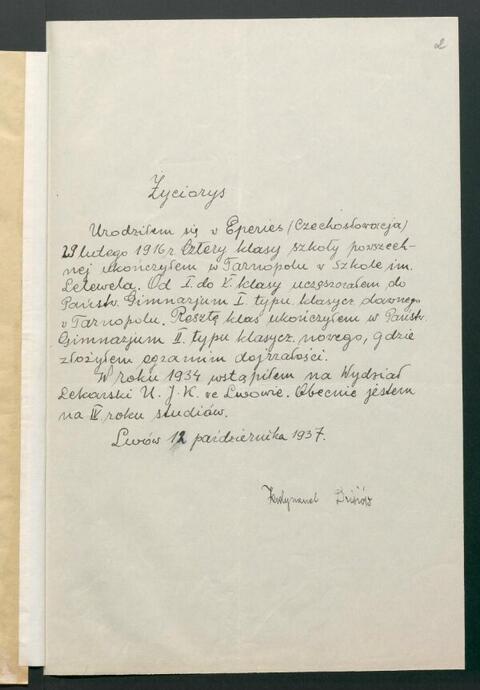 2
Życiorys
Urodziłem się w Eperies (Czechosłowacja)
29 lutego 1916 r. Cztery klasy szkoły powszech-
nej ukończyłem w Tarnopolu w Szkole im.
Lelewela. Od I. do V. klasy uczęszczałem do
Państw. Gimnazjum I. typu klasycz. dawnego
w Tarnopolu. Resztę klas ukończyłem w Państw.
Gimnazjum II. typu klasycz. nowego, gdzie
złożyłem egzamin dojrzałości.
W roku 1934 wstąpiłem na Wydział
Lekarski U. J. K. we Lwowie. Obecnie jestem
na IV roku studiów.
Lwów 12 października 1937.
Ferdynand